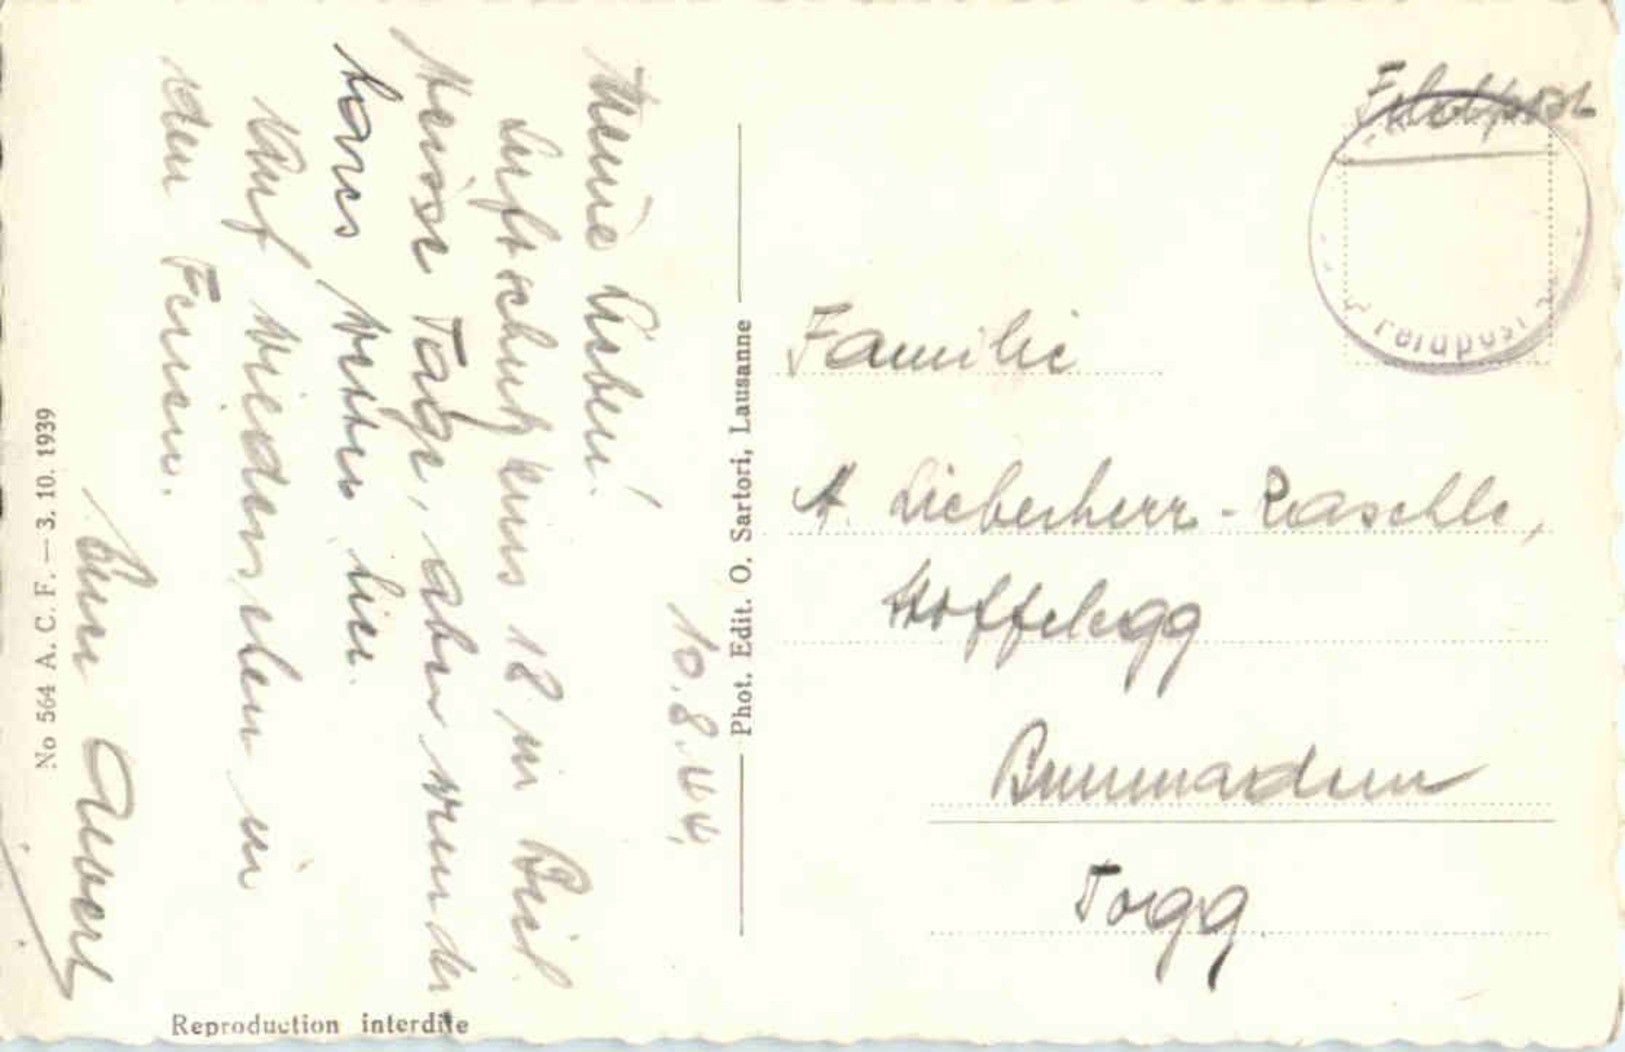 10.8.44.
Meine Lieben!
Luftschutzkurs 18 in Biel.
Heisse Tage, aber wunder
bares Wetter hier.
Auf Wiedersehen in
den Ferien.
Euer
No 564 A. C. F. — 3. 10. 1939
Reproduction interdite
Phot. Edit. O. Sartori, Lausanne
Feldpost
Feldpost
Familie
A. Lieberherr-Raschle,
Hoffelegg
Brunnadern
Togg.